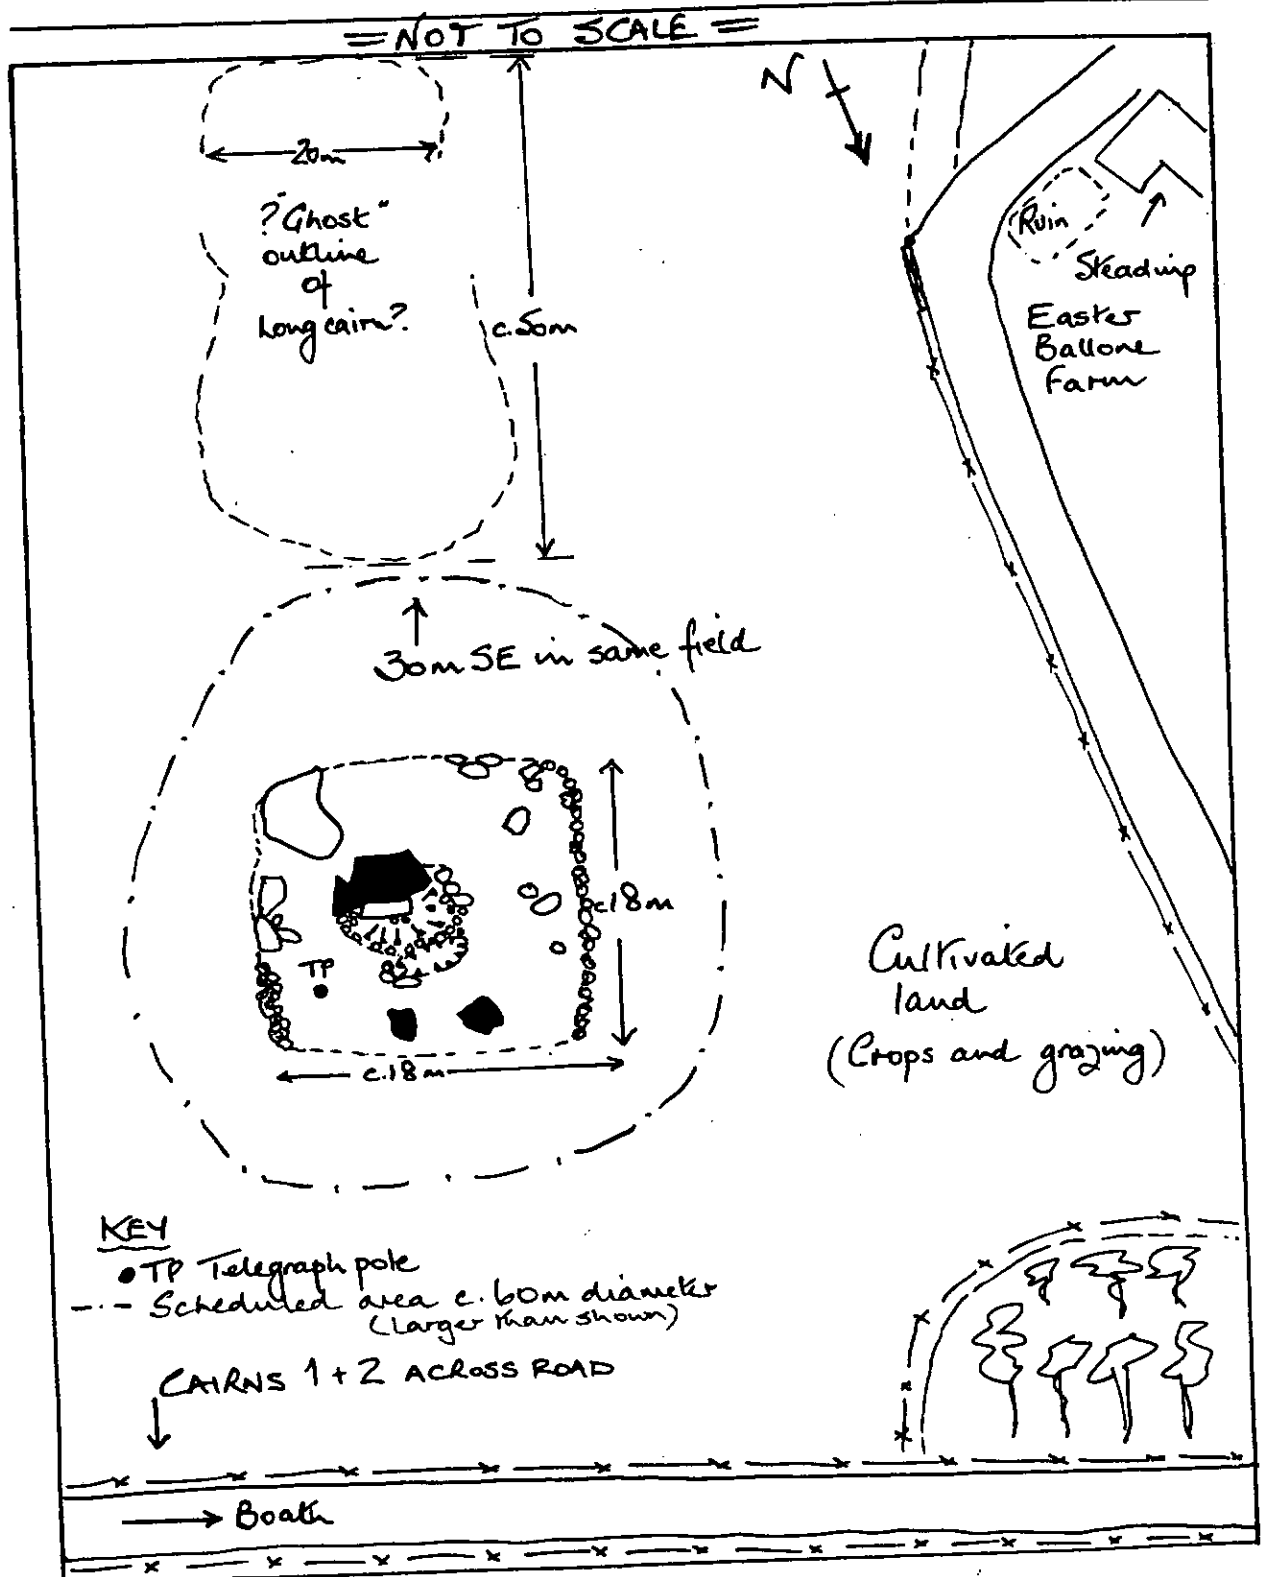 = NOT TO SCALE =
N
20m
? "Ghost"
outline
of
Long cairn?
c.50m
Ruin
Steading
Easter
Ballone
Farm
30m SE in same field
c.18m
TP
c.18m
Cultivated
land
(Crops and grazing)
KEY
• TP Telegraph pole
-·- Scheduled area c. 60m diameter
(larger than shown)
CAIRNS 1 + 2 ACROSS ROAD
Boath